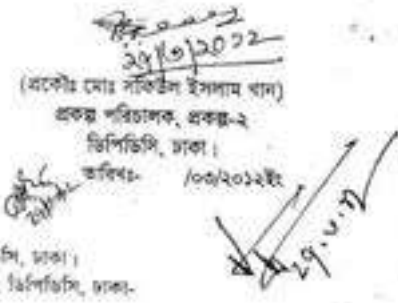 ২৭/৩/২০১২
(প্রকৌঃ মোঃ রকিউল ইসলাম খান)
প্রকল্প পরিচালক, প্রকল্প-২
ডিপিডিসি, ঢাকা।
তারিখঃ- /০৩/২০১২ইং
সি, ঢাকা।
ডিপিডিসি, ঢাকা-